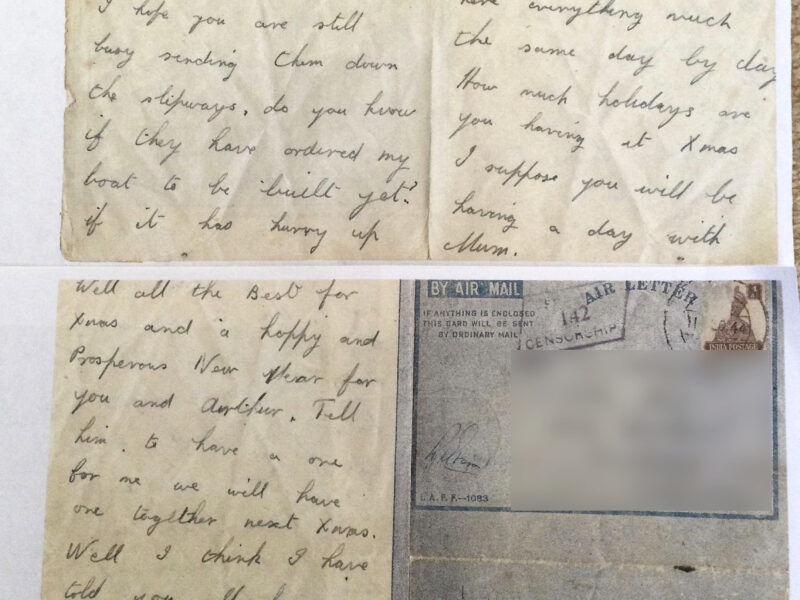 I hope you are still
busy sending them down
the slipways. do you know
if they have ordered my
boat to be built yet?
if it has hurry up
here everything much
the same day by day
How much holidays are
you having at Xmas
I suppose you will be
having a day with
Mum.
Well all the Best for
Xmas and a happy and
Prosperous New Year for
you and Arthur. Tell
him to have a one
for me we will have
one together next Xmas.
Well I think I have
told you all
BY AIR MAIL
AIR LETTER
IF ANYTHING IS ENCLOSED
THIS CARD WILL BE SENT
BY ORDINARY MAIL
142
CENSORSHIP
INDIA POSTAGE
I.A.F.F.—1083